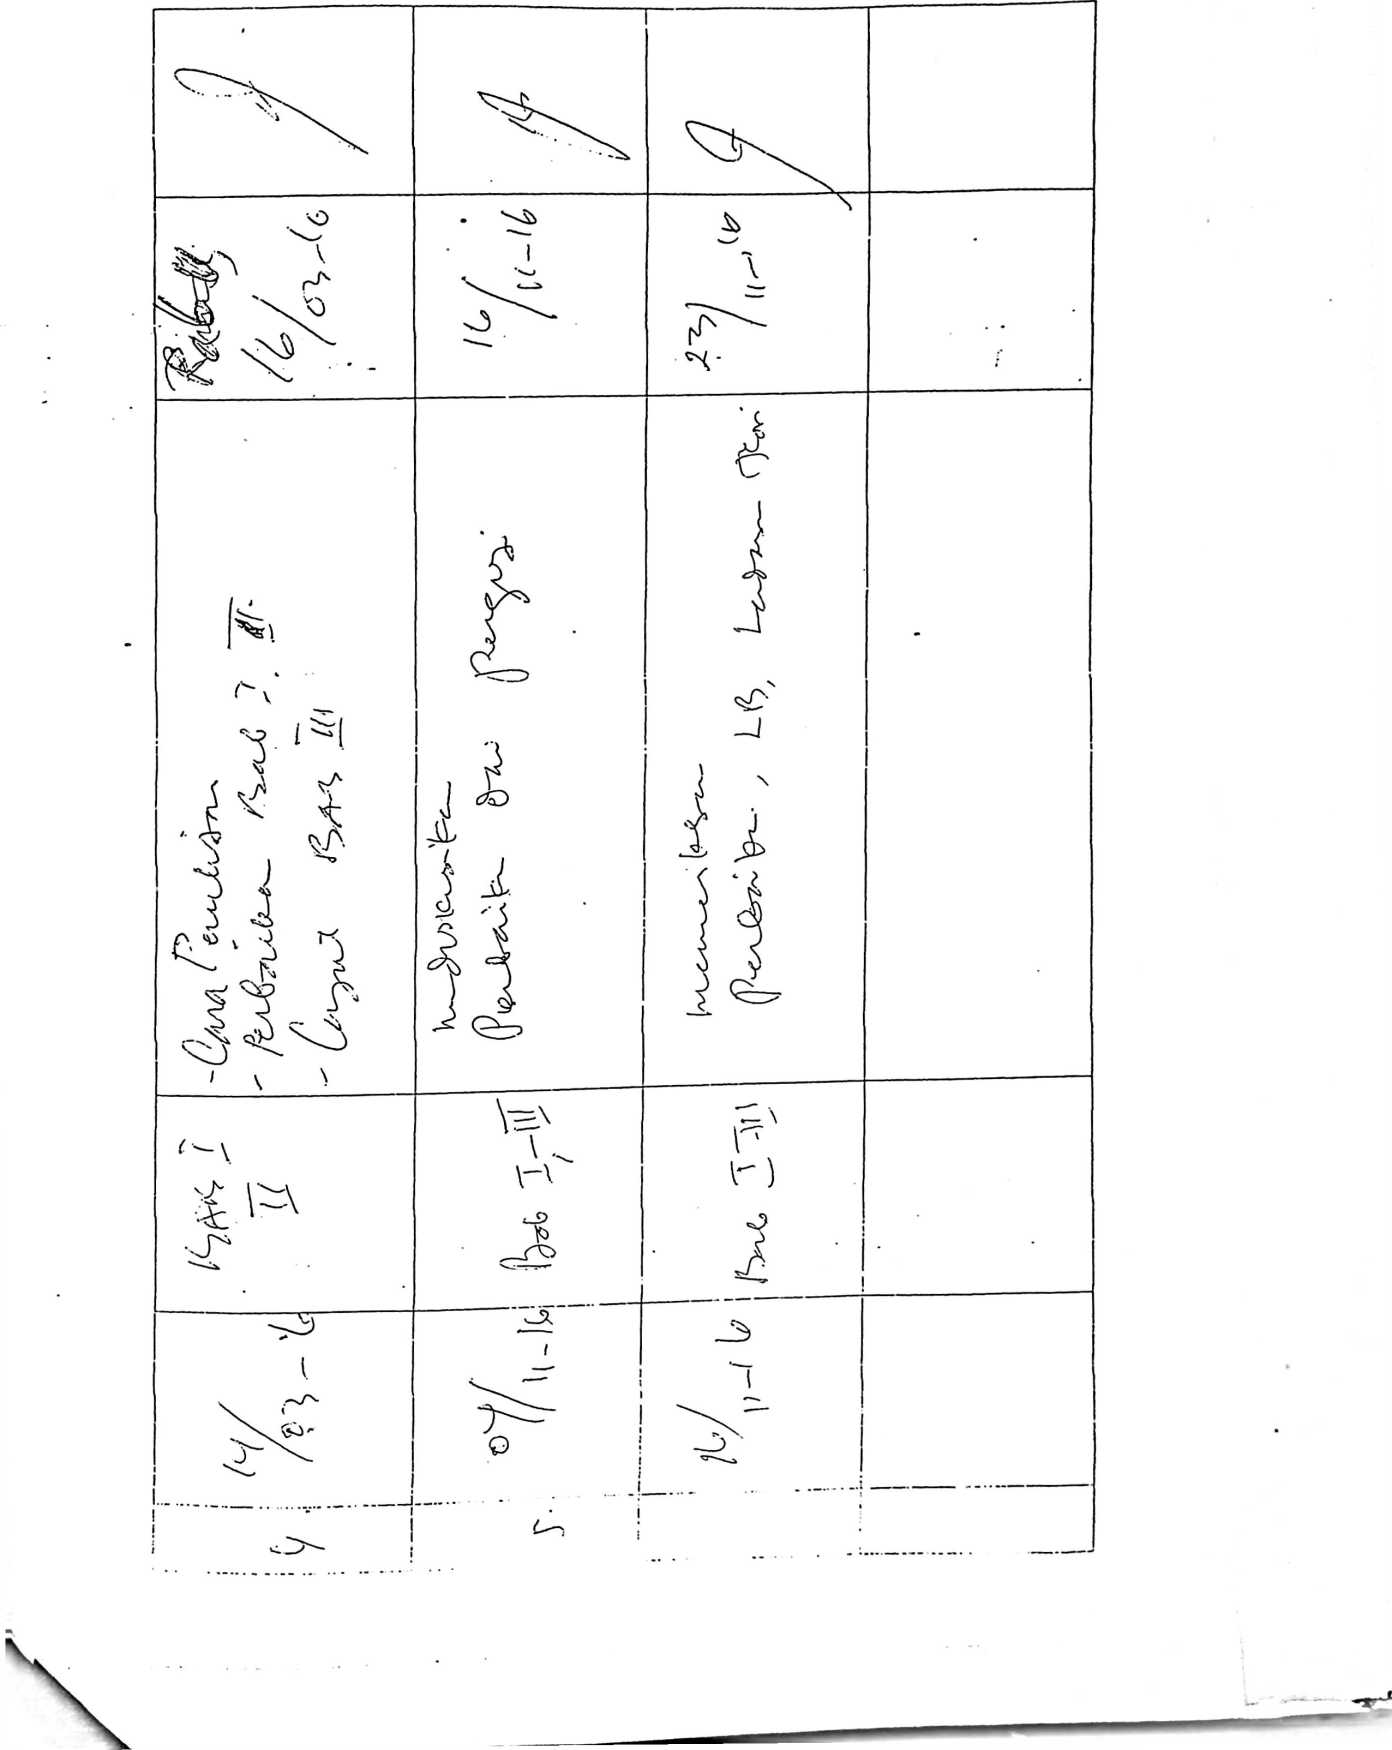 4
14/03-16
BAB I
II
- Cara Penulisan
- Perbaikan Bab I. II.
- Lanjut BAB III
16/03-16
5.
04/11-16
Bab I-III
Perbaiki dari Penguji
16/11-16
16/11-16
Bab I-III
Perbaikan, LB, Landasan Teori
23/11-16